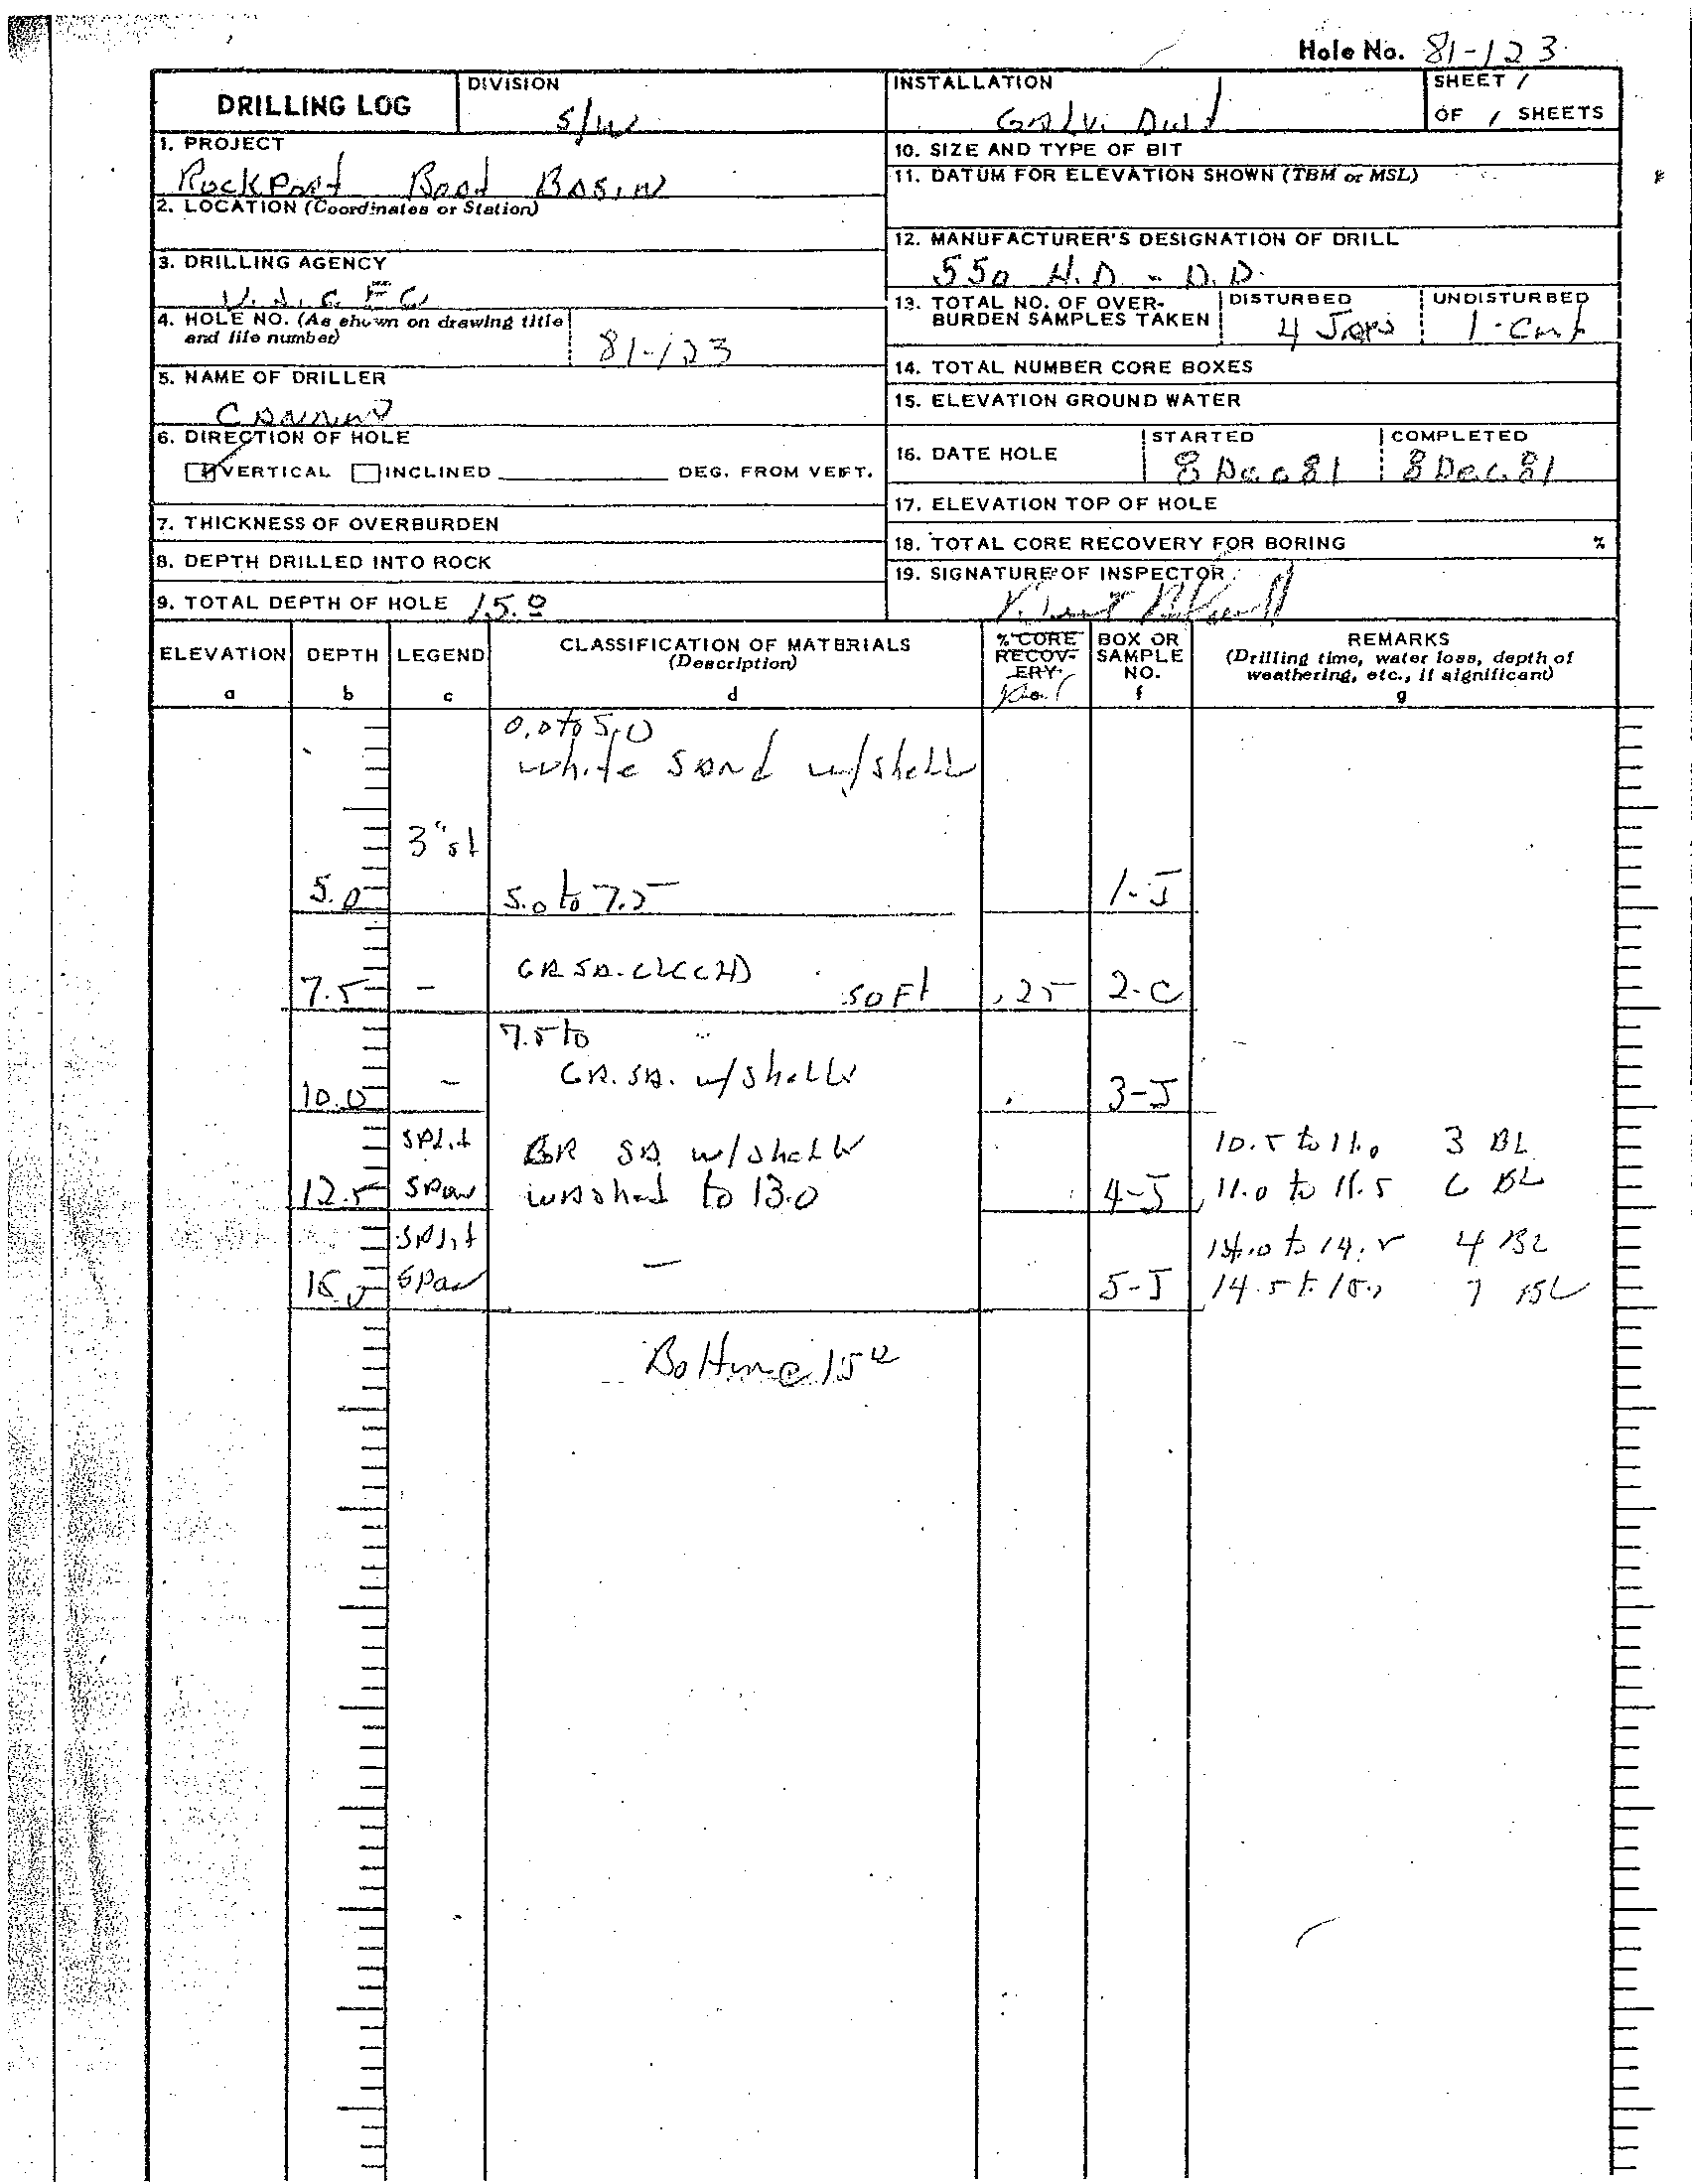 Hole No. 81-123
DRILLING LOG
DIVISION
S/W
INSTALLATION
Galv. Dist
SHEET 1
OF 1 SHEETS
1. PROJECT
Rockport Boat Basin
2. LOCATION (Coordinates or Station)
3. DRILLING AGENCY
4. HOLE NO. (As shown on drawing title
and file number)
81-123
5. NAME OF DRILLER
6. DIRECTION OF HOLE
VERTICAL INCLINED DEG. FROM VERT.
7. THICKNESS OF OVERBURDEN
8. DEPTH DRILLED INTO ROCK
9. TOTAL DEPTH OF HOLE 15.0
10. SIZE AND TYPE OF BIT
11. DATUM FOR ELEVATION SHOWN (TBM or MSL)
12. MANUFACTURER'S DESIGNATION OF DRILL
550 H.D. - D.D.
13. TOTAL NO. OF OVER-
BURDEN SAMPLES TAKEN
DISTURBED
4 Jars
UNDISTURBED
1-
14. TOTAL NUMBER CORE BOXES
15. ELEVATION GROUND WATER
16. DATE HOLE
STARTED
8 Dec 81
COMPLETED
8 Dec. 81
17. ELEVATION TOP OF HOLE
18. TOTAL CORE RECOVERY FOR BORING %
19. SIGNATURE OF INSPECTOR
ELEVATION DEPTH LEGEND
CLASSIFICATION OF MATERIALS
(Description)
% CORE
RECOV-
ERY
BOX OR
SAMPLE
NO.
REMARKS
(Drilling time, water loss, depth of
weathering, etc., if significant)
a b c d f g
0.0 to 5.0
white sand w/shell
3" st
5.0 5.0 to 7.5 1-J
GR SA. CL (CH)
7.5 - soft .25 2-C
7.5 to
GR. SA. w/shell
10.0 - 3-J
Split BR SA w/shell 10.5 to 11.0 3 BL
12.5 Spoon washed to 13.0 4-J 11.0 to 11.5 6 BL
Split 14.0 to 14.5 4 BL
15.0 Spoon - 5-J 14.5 to 15.0 7 BL
Bottom @ 15.0